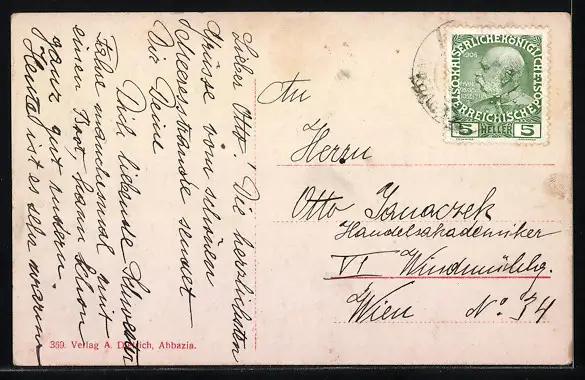 Lieber Otto! Die herzlichsten
Grüsse vom schönen
Meeresstrande sendet
Dir Deine
Dich liebende Schwester
Fahre manchesmal mit
einen Boot, kann schon
ganz gut rudern.
Heute ist es sehr warm
An
Herrn
Otto Janaczek
Handelsakademiker
VI Windmühlg.
Wien No. 34
KAISERLICHE KÖNIGLICHE
ÖSTERREICHISCHE
5 HELLER 5
369. Verlag A. Dietrich, Abbazia.